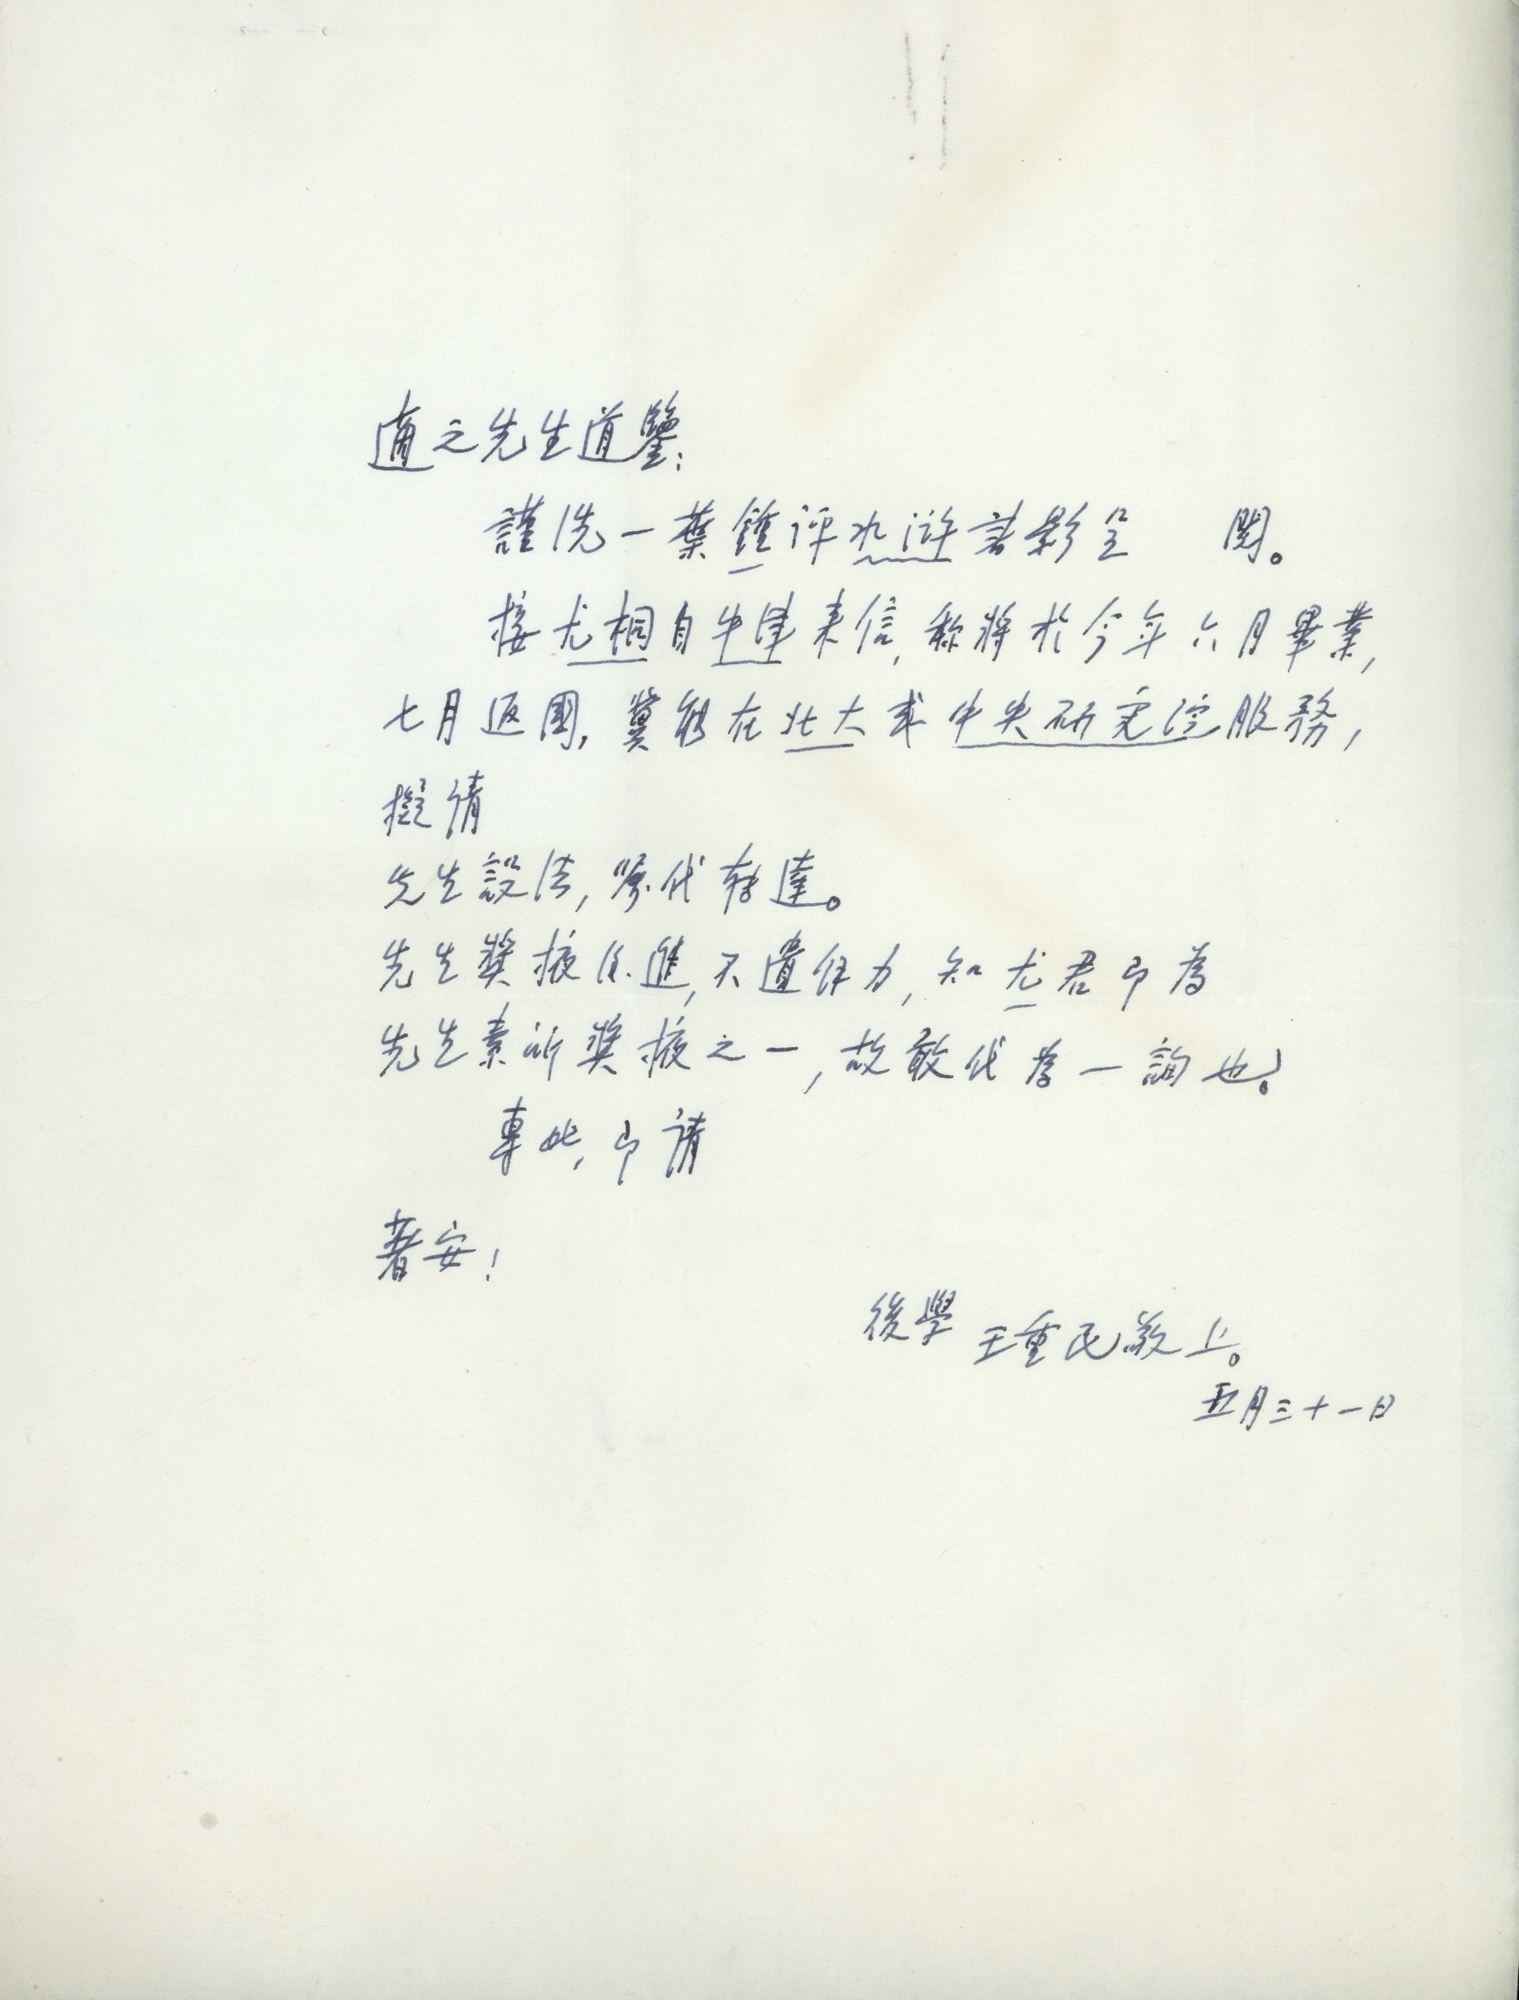 適之先生道鑒:
謹洗一葉鍾評水滸書影呈 閱。
接尤桐自牛津来信,称將於今年六月畢業,
七月返國,冀能在北大或中央研究院服務,
擬请
先生設法,嘱代轉達。
先生獎掖後進,不遺餘力,知尤君即為
先生素所獎掖之一,故敢代為一詢也。
專此,即请
著安!
後學 王重民敬上。
五月三十一日